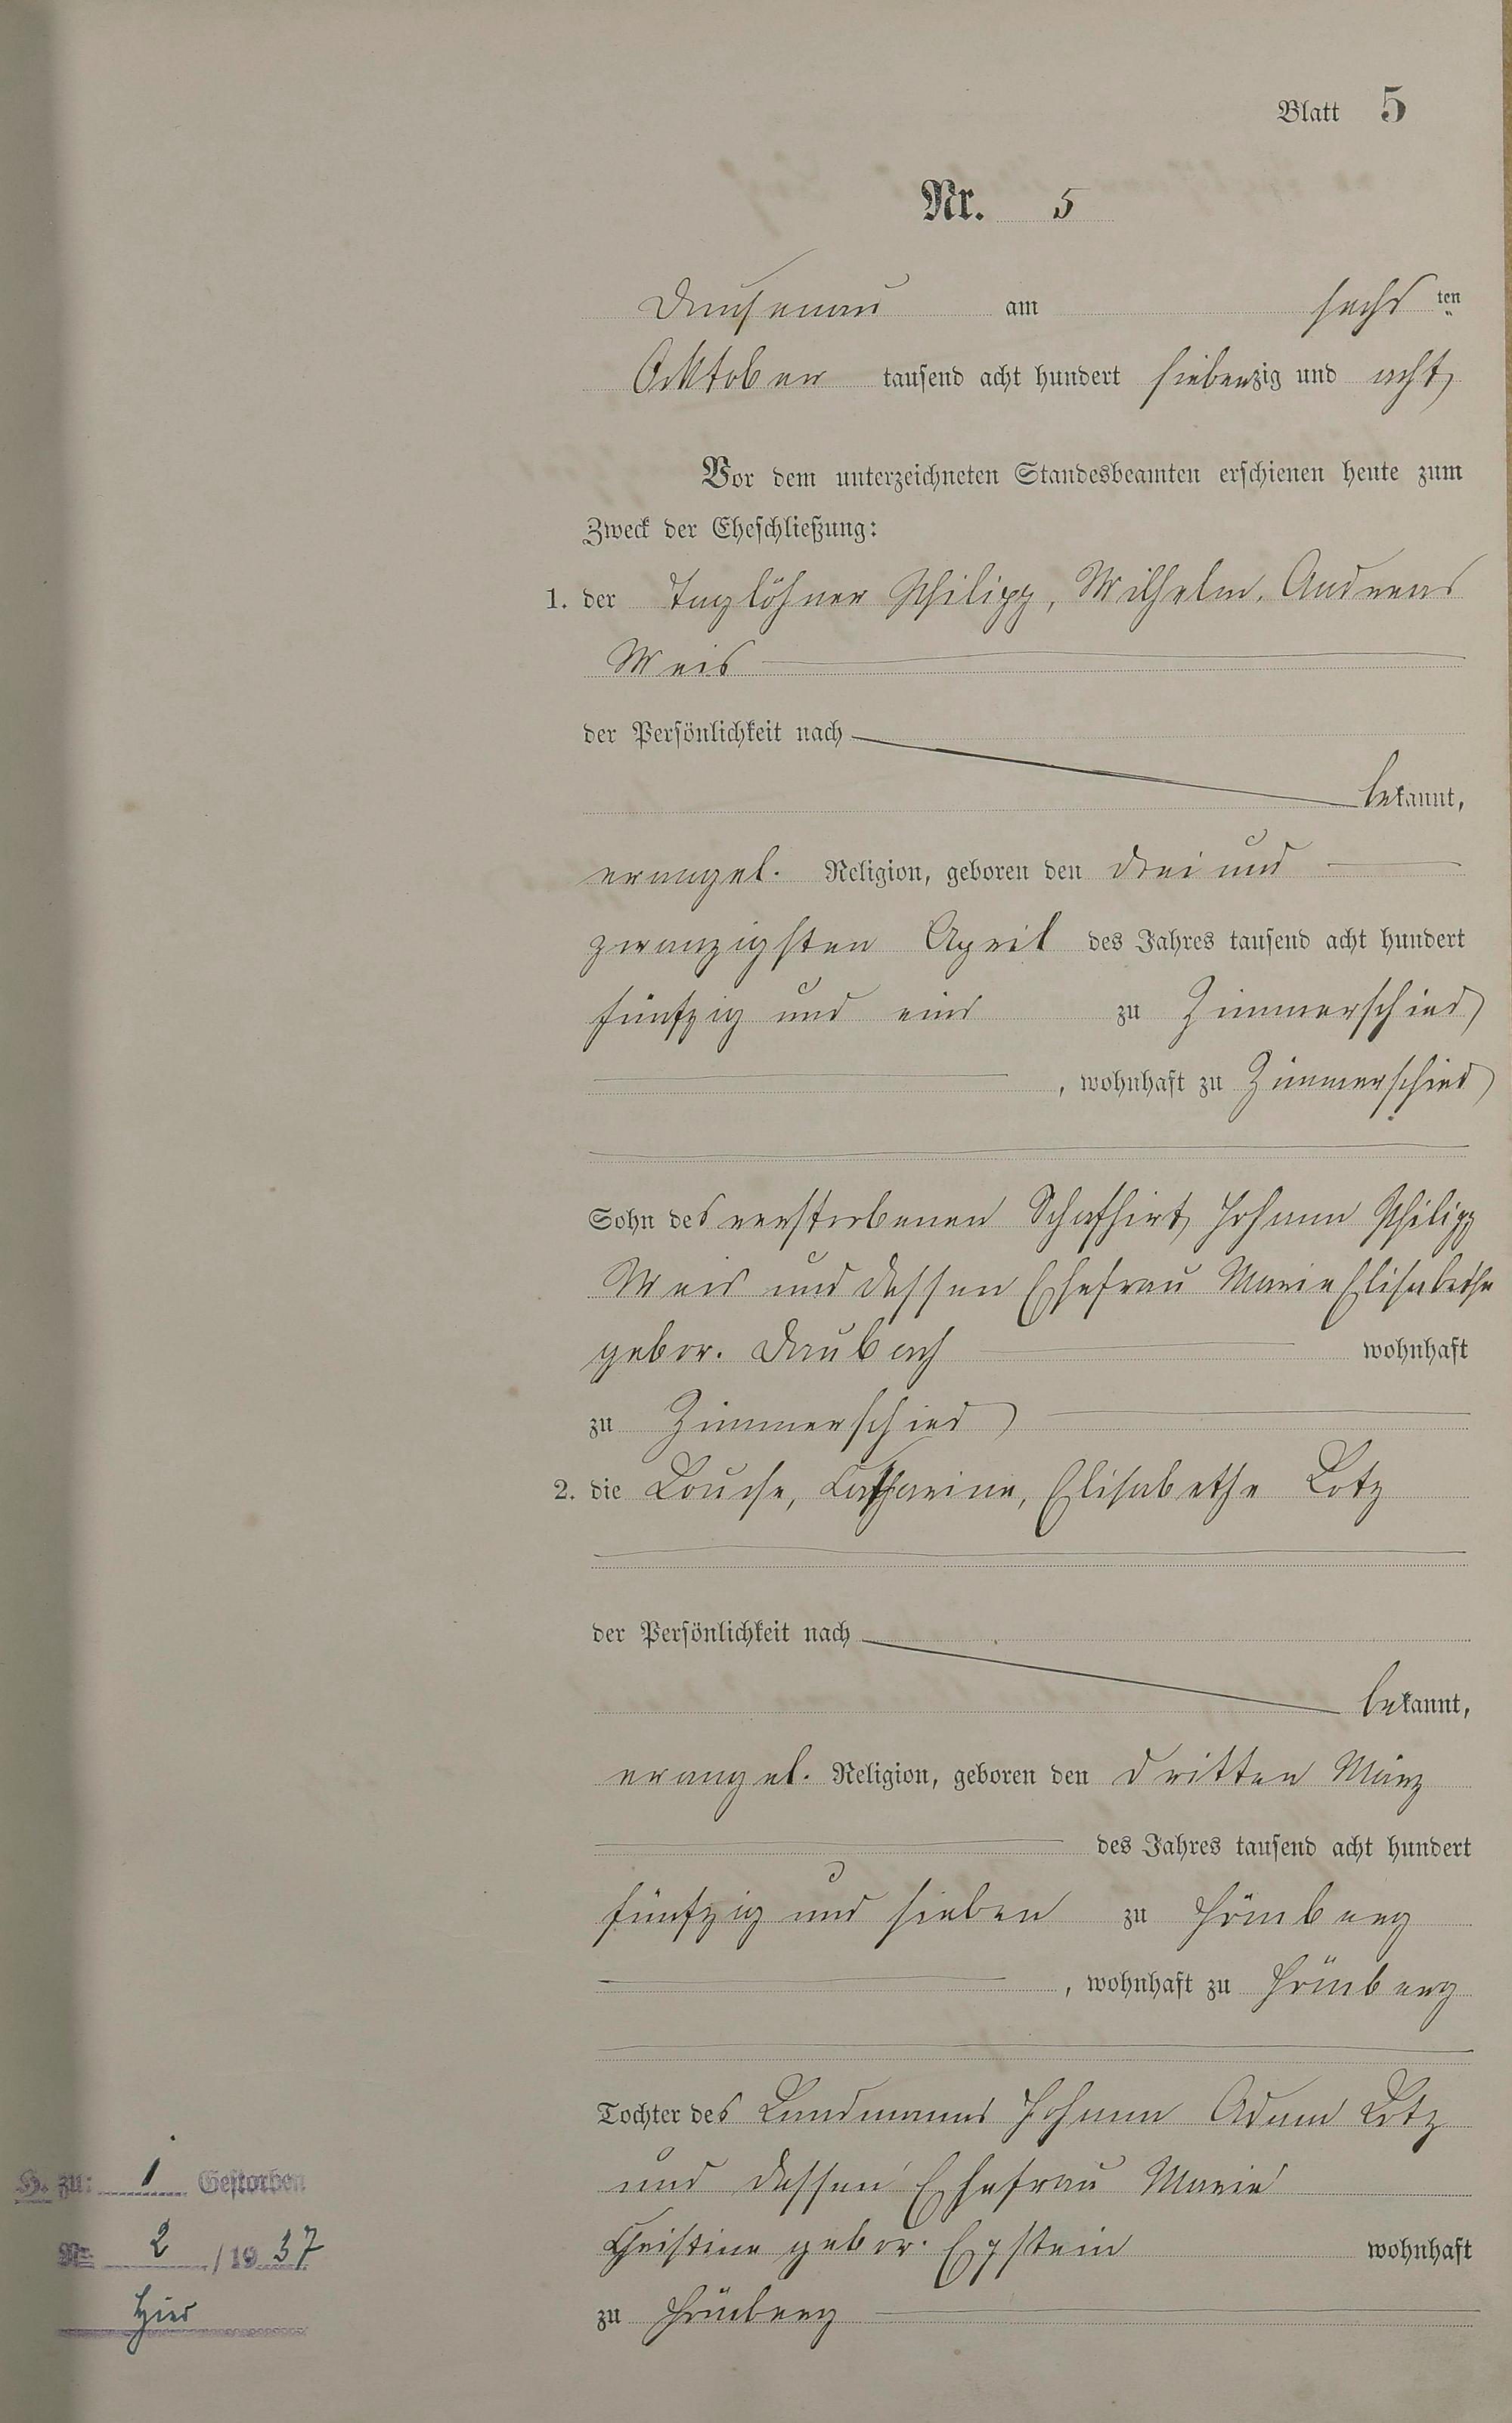 Blatt 5
Nr. 5
Dausenau am sechs ten
Oktober tausend acht hundert siebenzig und acht
Vor dem unterzeichneten Standesbeamten erschienen heute zum
Zweck der Eheschließung:
1. der Taglöhner Philipp, Wilhelm, Andreas
Weis
der Persönlichkeit nach
bekannt,
evangel. Religion, geboren den drei und
zwanzigsten April des Jahres tausend acht hundert
fünfzig und eins zu Zimmerschied
, wohnhaft zu Zimmerschied
Sohn des verstorbenen Schafhirt Johann Philipp
Weis und dessen Ehefrau Marie Elisabethe
gebor. Daubach wohnhaft
zu Zimmerschied
2. die Louise, Catharina, Elisabethe Lotz
der Persönlichkeit nach
bekannt,
evangel. Religion, geboren den dritten März
des Jahres tausend acht hundert
fünfzig und sieben zu Hömberg
, wohnhaft zu Hömberg
Tochter des Landmanns Johann Adam Lotz
und dessen Ehefrau Marie
Christine gebor. Epstein wohnhaft
zu Hömberg
H. zu: 1 Gestorben
Nr. 2 /19 37
hier